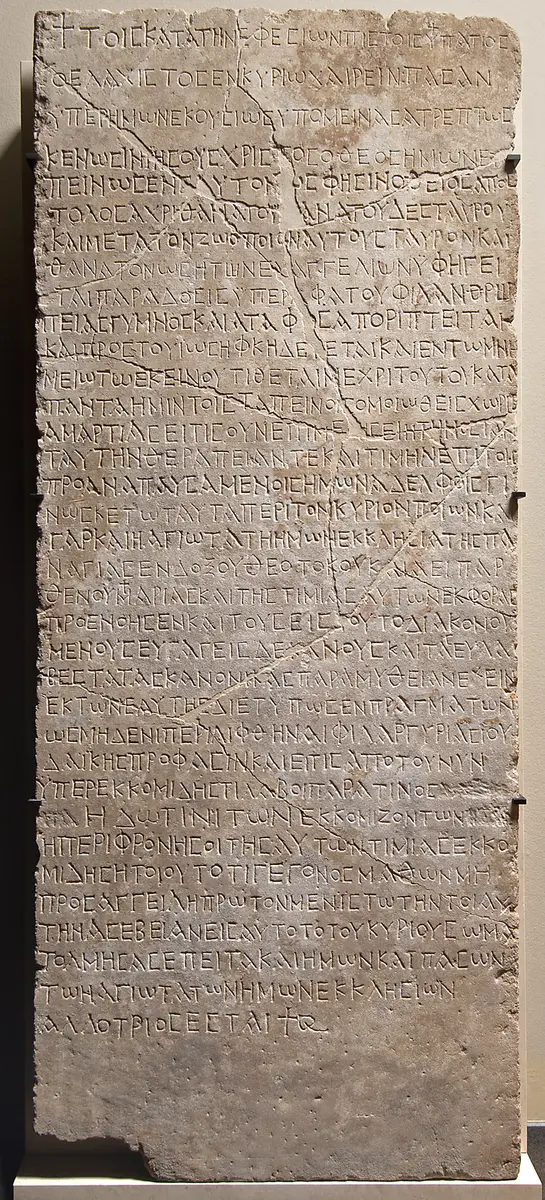 ✝ΤΟΙΣΚΑΤΑΤΗΝΕΦΕΣΙΩΝΠΙΣΤΟΙΣΥΠΑΤΙΟΣ
ΟΕΛΑΧΙΣΤΟΣΕΝΚΥΡΙΩΧΑΙΡΕΙΝΠΑΣΑΝ
ΥΠΕΡΗΜΩΝΕΚΟΥΣΙΩΣΥΠΟΜΕΙΝΑΣΑΤΡΕΠΤΩΣ
ΚΕΝΩΣΙΝΙΗΣΟΥΣΧΡΙΣΤΟΣΟΘΕΟΣΗΜΩΝΕ
ΠΕΙΝΩΣΕΝΕΑΥΤΟΝΩΣΦΗΣΙΝΟΘΕΙΟΣΑΠΟΣ
ΤΟΛΟΣΑΧΡΙΘΑΝΑΤΟΥΘΑΝΑΤΟΥΔΕΣΤΑΥΡΟΥ
ΚΑΙΜΕΤΑΤΟΝΖΩΟΠΟΙΟΝΑΥΤΟΥΣΤΑΥΡΟΝΚΑΙ
ΘΑΝΑΤΟΝΩΣΗΤΩΝΕΥΑΓΓΕΛΙΩΝΥΦΗΓΕΙ
ΤΑΙΠΑΡΑΔΟΣΙΣΥΠΕΡΑΦΑΤΟΥΦΙΛΑΝΘΡΩ
ΠΕΙΑΣΓΥΜΝΟΣΚΑΙΑΤΑΦΟΣΑΠΟΡΙΠΤΕΙΤΑΙ
ΚΑΙΠΡΟΣΤΟΥΙΩΣΗΦΚΗΔΕΥΕΤΑΙΚΑΙΕΝΤΩΜΝΗ
ΜΕΙΩΤΩΕΚΕΙΝΟΥΤΙΘΕΤΑΙΜΕΧΡΙΤΟΥΤΟΥΚΑΤΑ
ΠΑΝΤΑΗΜΙΝΤΟΙΣΤΑΠΕΙΝΟΙΣΟΜΟΙΩΘΕΙΣΧΩΡΙΣ
ΑΜΑΡΤΙΑΣΕΙΤΙΣΟΥΝΕΠΙΜΕΜΨΕΣΕΙΗΤΗΝΟΣΙΑΝ
ΤΑΥΤΗΝΘΕΡΑΠΕΙΑΝΤΕΚΑΙΤΙΜΗΝΕΠΙΤΟΙΣ
ΠΡΟΑΝΑΠΑΥΣΑΜΕΝΟΙΣΗΜΩΝΑΔΕΛΦΟΙΣΓΙ
ΝΩΣΚΕΤΩΤΑΥΤΑΠΕΡΙΤΟΝΚΥΡΙΟΝΠΟΙΩΝΚΑΙ
ΓΑΡΚΑΙΗΑΓΙΩΤΑΤΗΗΜΩΝΕΚΚΛΗΣΙΑΤΗΣΠΑ
ΝΑΓΙΑΣΕΝΔΟΞΟΥΘΕΟΤΟΚΟΥΚΑΙΑΕΙΠΑΡ
ΘΕΝΟΥΜΑΡΙΑΣΚΑΙΤΗΣΤΙΜΙΑΣΑΥΤΩΝΕΚΦΟΡΑΣ
ΠΡΟΕΝΟΗΣΕΝΚΑΙΤΟΥΣΕΙΣΤΟΥΤΟΔΙΑΚΟΝΟΥ
ΜΕΝΟΥΣΕΥΑΓΕΙΣΔΕΚΑΝΟΥΣΚΑΙΤΑΣΕΥΛΑ
ΒΕΣΤΑΤΑΣΚΑΝΟΝΙΚΑΣΠΑΡΑΜΥΘΕΙΑΝΕΧΕΙΝ
ΕΚΤΩΝΕΑΥΤΗΣΔΙΕΤΥΠΩΣΕΝΠΡΑΓΜΑΤΩΝ
ΩΣΜΗΔΕΝΙΠΕΡΙΛΙΦΘΗΝΑΙΦΙΛΑΡΓΥΡΙΑΣΙΟΥ
ΔΑΪΚΗΣΠΡΟΦΑΣΙΝΚΑΙΕΙΤΙΣΑΠΟΤΟΥΝΥΝ
ΥΠΕΡΕΚΚΟΜΙΔΗΣΤΙΛΑΒΟΙΠΑΡΑΤΙΝΟΣ
Η ΔΩΤΙΝΙΤΩΝΕΚΚΟΜΙΖΟΝΤΩΝ
ΗΠΕΡΙΦΡΟΝΗΣΟΙΤΗΣΑΥΤΩΝΤΙΜΙΑΣΕΚΚΟ
ΜΙΔΗΣΗΤΟΙΟΥΤΟΤΙΓΕΓΟΝΟΣΜΑΘΩΝΜΗ
ΠΡΟΣΑΓΓΕΙΛΗΠΡΩΤΟΝΜΕΝΙΣΤΩΤΗΝΤΟΙΑΥ
ΤΗΝΑΣΕΒΕΙΑΝΕΙΣΑΥΤΟΤΟΤΟΥΚΥΡΙΟΥΣΩΜΑ
ΤΟΛΜΗΣΑΣΕΠΕΙΤΑΚΑΙΗΜΩΝΚΑΙΠΑΣΩΝ
ΤΩΝΑΓΙΩΤΑΤΩΝΗΜΩΝΕΚΚΛΗΣΙΩΝ
ΑΛΛΟΤΡΙΟΣΕΣΤΑΙ✝